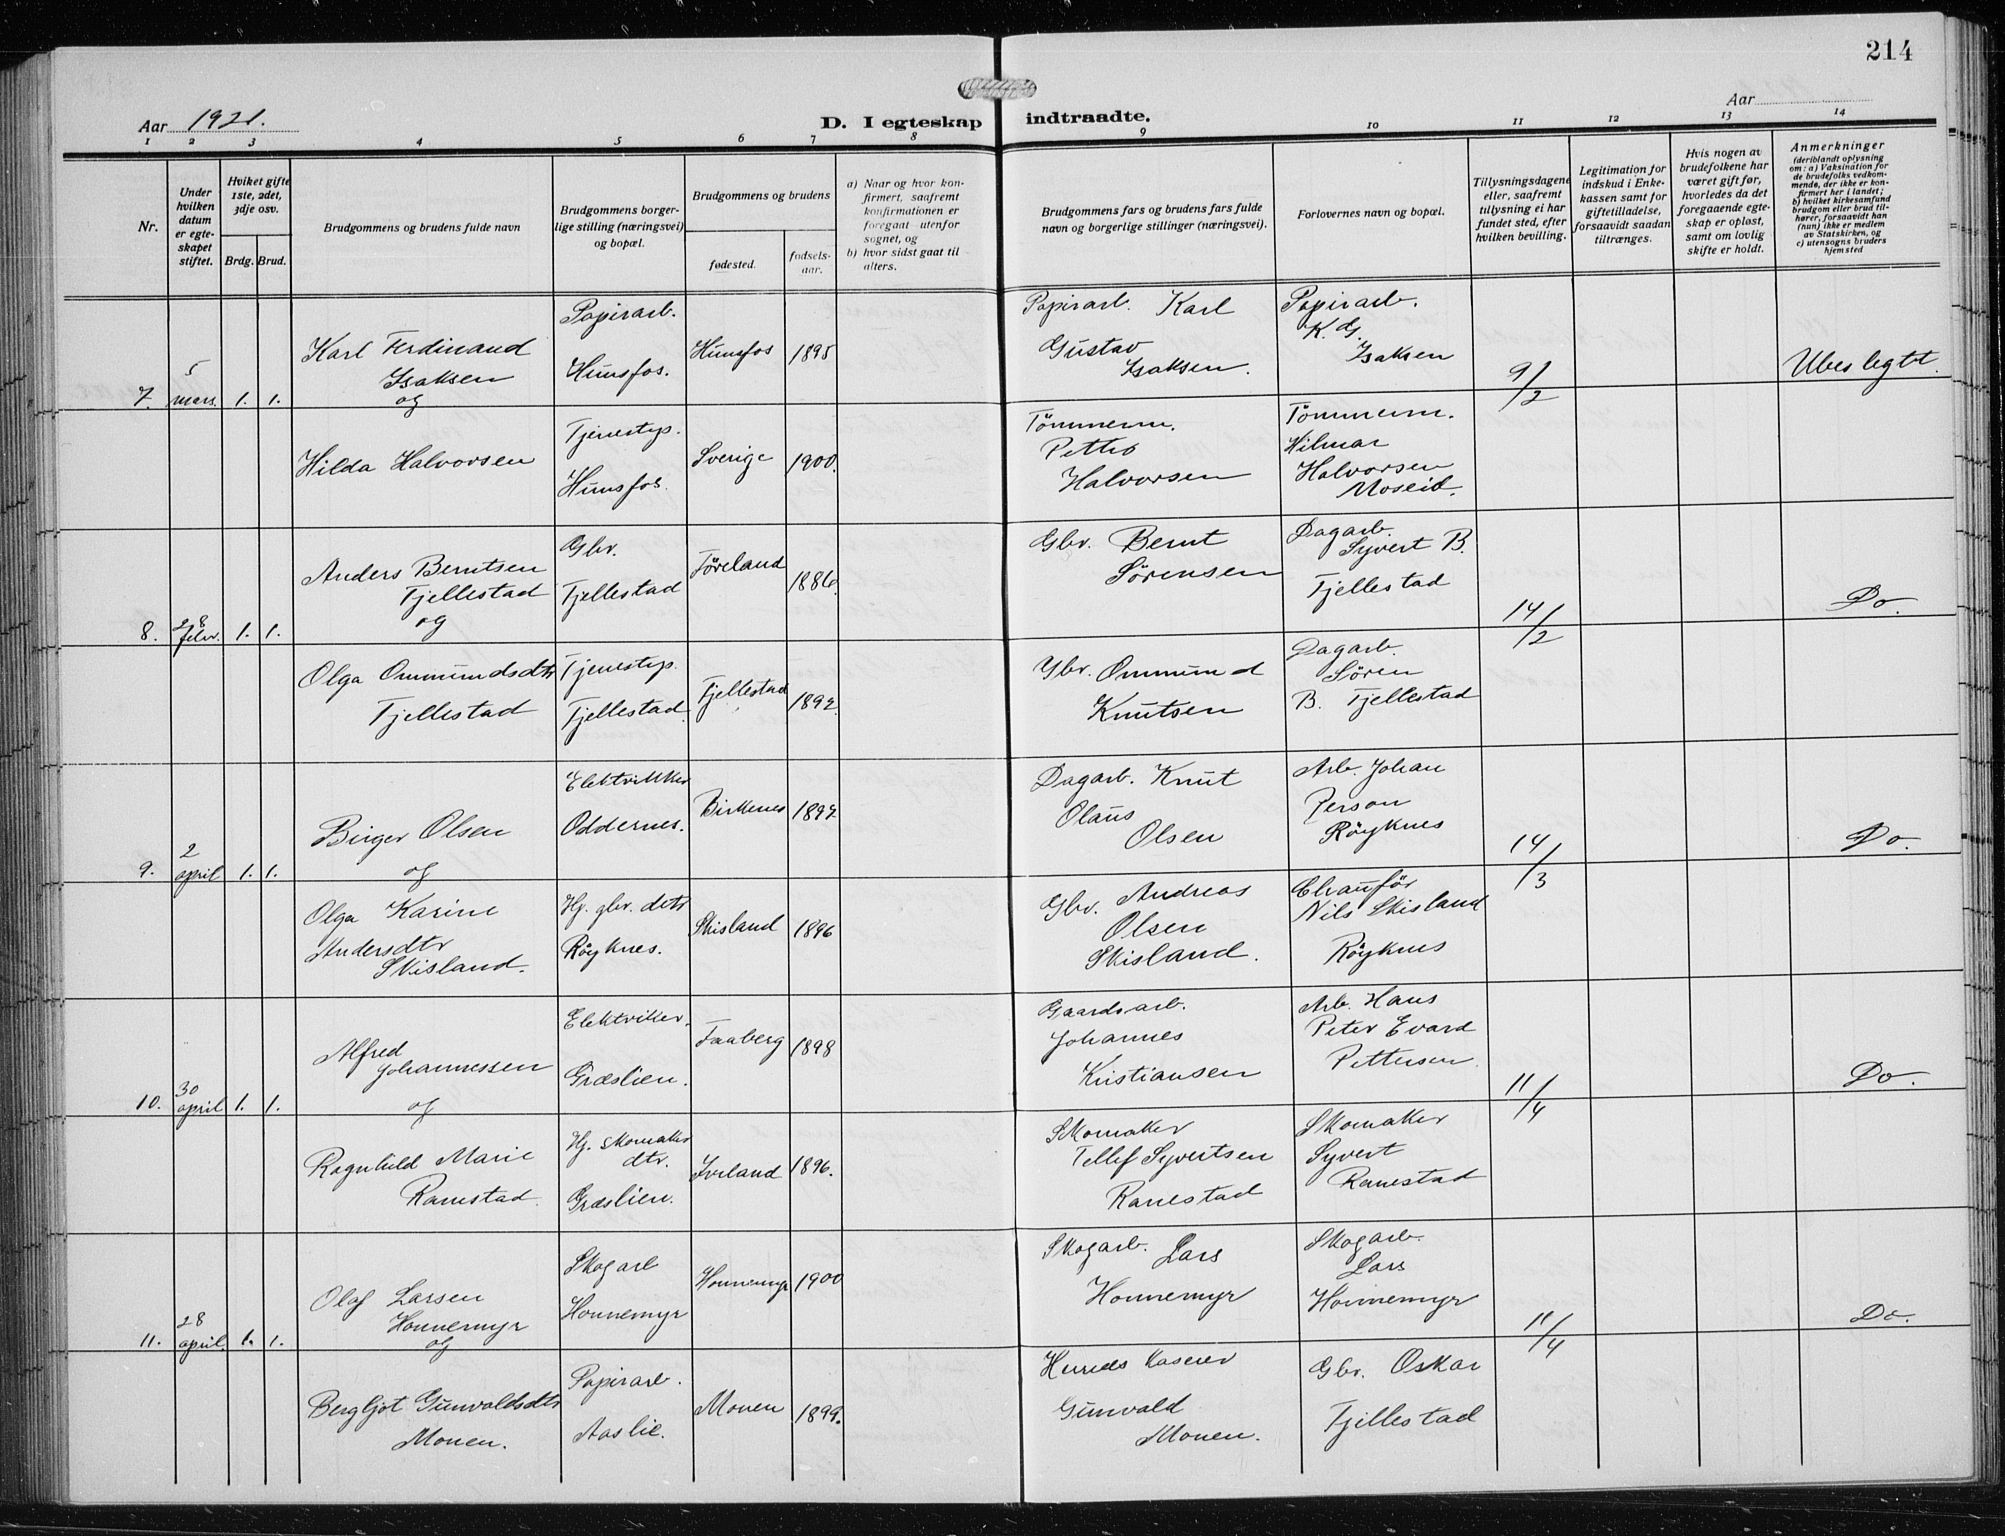 214
Aar 1921.
D. I egteskap indtraadte.
Aar
1 2 3 4 5 6 7 8 9 10 11 12 13 14
Nr.
Under
hvilken
datum
er egte-
skapet
stiftet.
Hviket gifte
1ste, 2det,
3dje osv.
Brdg. Brud.
Brudgommens og brudens fulde navn
Brudgommens borger-
lige stilling (næringsvei)
og bopæl.
Brudgommens og brudens
fødested.
fødsels-
aar.
a) Naar og hvor kon-
firmert, saafremt
konfirmationen er
foregaat utenfor
sognet, og
b) hvor sidst gaat til
alters.
Brudgommens fars og brudens fars fulde
navn og borgerlige stillinger (næringsvei).
Forlovernes navn og bopæl.
Tillysningsdagene
eller, saafremt
tillysning ei har
fundet sted, efter
hvilken bevilling.
Legitimation for
indskud i Enke-
kassen samt for
giftetilladelse,
forsaavidt saadan
tiltrænges.
Hvis nogen av
brudefolkene har
været gift før,
hvorledes da det
foregaaende egte-
skap er opløst,
samt om lovlig
skifte er holdt.
Anmerkninger
(deriblandt oplysning
om: a) Vaksination for
de brudefolks vedkom-
mende, der ikke er kon-
firmert her i landet;
b) hvilket kirkesamfund
brudgom eller brud til-
hører, forsaavidt han
(hun) ikke er medlem
av Statskirken, og
c) utensogns bruders
hjemsted
7. 5 mars. 1. 1.
Karl Ferdinand
Isaksen
og
Papirarb.
Hunsfos.
Hunsfos 1895
Papirarb. Karl
Gustav
Isaksen.
Papirarb.
K. G.
Isaksen
9/2
Ubeslegtet.
Hilda Halvorsen
Tjenestyp.
Hunsfos.
Sverige 1900.
Tömmerm.
Petter
Halvorsen
Tömmerm.
Hilmar
Halvorsen
Moseid.
8. 28 febr. 1. 1.
Anders Berntsen
Tjellestad
og
Gbr.
Tjellestad
Föreland 1886.
Gbr. Bernt
Sörensen
Dagarb.
Syvert B.
Tjellestad
14/2
Do.
Olga Ommundsdtr
Tjellestad
Tjenestyp.
Tjellestad.
Tjellestad 1892.
Gbr. Ommund
Knutsen
Dagarb.
Sören
B. Tjellestad
9. 2 april 1. 1.
Birger Olsen
og
Elektrikker
Oddernes.
Birkenes 1892
Dagarb. Knut
Olaus
Olsen
Arb. Johan
Person
Röyknes
14/3
Do.
Olga Karine
Andersdtr
Skisland.
Hj. gbr. dtr
Röyknes.
Skisland 1896
Gbr. Andreas
Olsen
Skisland.
Chauför
Nils Skisland
Röyknes
10. 30 april 1. 1.
Alfred
Johannessen
og
Elektriker.
Græslien.
Faaberg 1898
Gaardsarb.
Johannes
Kristiansen
Arb. Hans
Peter Evard
Pettersen
11/4
Do.
Ragnhild Marie
Ranestad.
Hj. skomaker
dtr.
Græslien.
Iveland 1896.
Skomaker
Tellef Syvertsen
Ranestad
Skomaker
Syvert
Ranestad
11. 28 april. 1. 1.
Olaf Larsen
Honnemyr
og
Skogarb
Honnemyr
Honnemyr 1900
Skogarb. Lars
Honnemyr
Skogarb.
Lars
Honnemyr
11/4
Do.
Bergljot Gunvaldsdtr
Monen.
Papirarb.
Aaslie.
Monen 1899.
Herreds kaserer
Gunvald
Monen.
Gbr. Oskar
Tjellestad